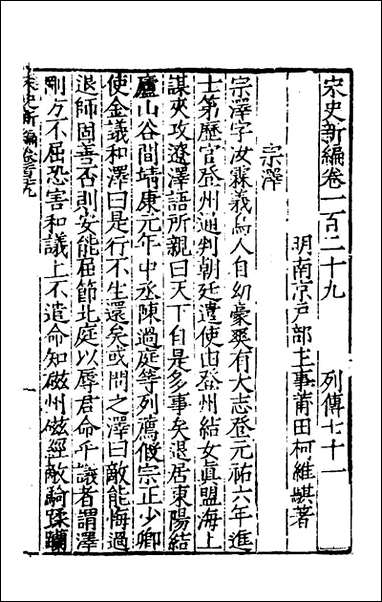 宋史新編卷一百二十九 列傳七十一
明南京戶部主事莆田柯維騏著
宗澤
宗澤字汝霖義烏人自幼豪爽有大志登元祐六年進
士第歷官登州通判朝廷遣使由登州結女真盟海上
謀夾攻遼澤語所親曰天下自是多事矣退居東陽結
廬山谷間靖康元年中丞陳過庭等列薦假宗正少卿
使金議和澤曰是行不生還矣或問之澤曰敵能悔過
退師固善否則安能屈節北庭以辱君命乎議者謂澤
剛方不屈恐害和議上不遣命知磁州磁經敵騎蹂躪
宋史新編卷百二九
一